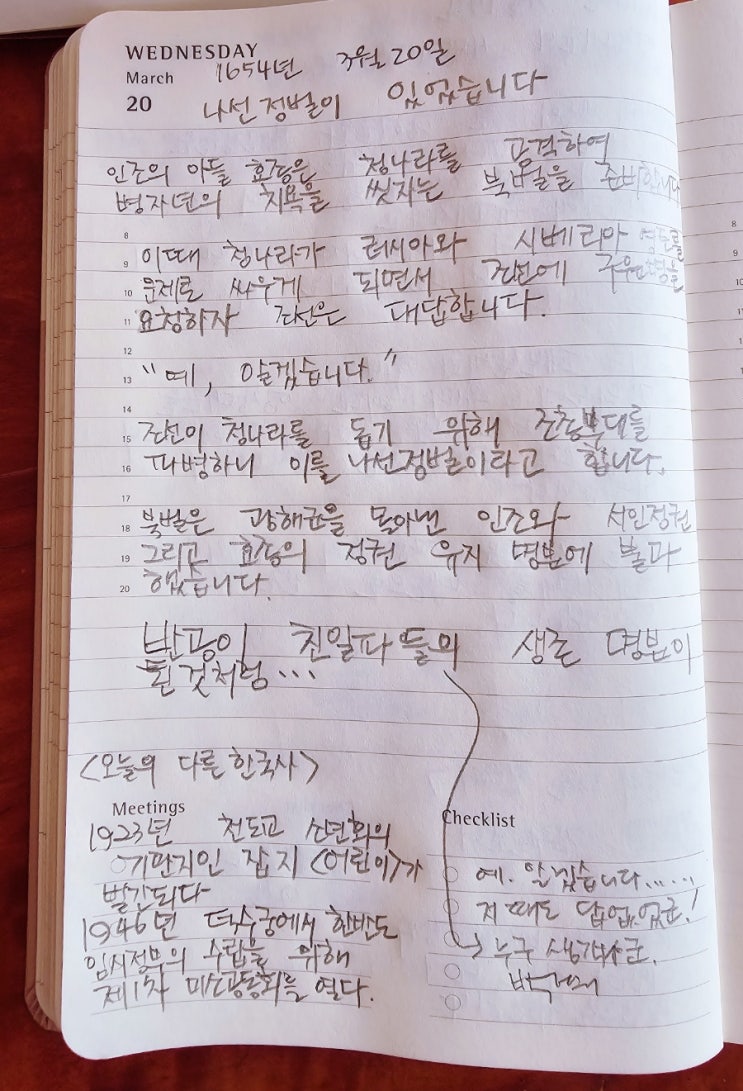 WEDNESDAY
March
20
1654년 3월 20일
나선정벌이 있었습니다
인조의 아들 효종은 청나라를 공격하여
병자년의 치욕을 씻자는 북벌을 준비합니다
8
9 이때 청나라가 러시아와 시베리아 영토를
10 문제로 싸우게 되면서 조선에 구원병을
11 요청하자 조선은 대답합니다.
12
13 "예, 알겠습니다."
14
15 조선이 청나라를 돕기 위해 조총부대를
16 파병하니 이를 나선정벌이라고 합니다.
17
18 북벌은 광해군을 몰아낸 인조와 서인정권
19 그리고 효종의 정권 유지 명분에 불과
20 했습니다.
반공이 친일파들의 생존 명분이
된 것처럼...
<오늘의 다른 한국사>
Meetings
1923년 천도교 소년회의
기관지인 잡지 <어린이>가
발간되다
1946년 덕수궁에서 한반도
임시정부의 수립을 위해
제1차 미소공동회를 열다.
Checklist
예. 알겠습니다......
저 때도 답없었군!
누구 생각나군.